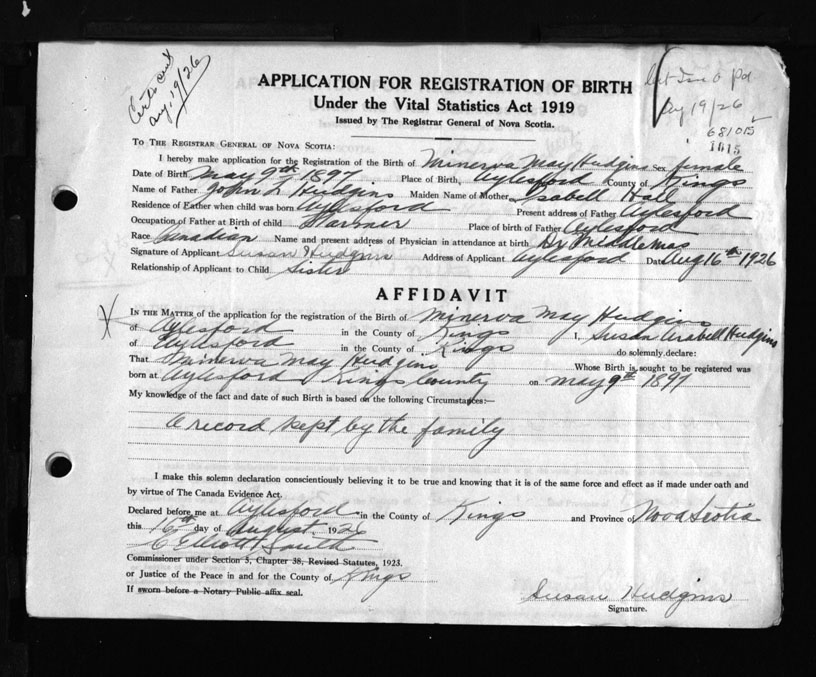 Certs sent
Aug. 19/26
pd
Aug 19/26
681015
1815
APPLICATION FOR REGISTRATION OF BIRTH
Under the Vital Statistics Act 1919
Issued by The Registrar General of Nova Scotia.
TO THE REGISTRAR GENERAL OF NOVA SCOTIA:
I hereby make application for the Registration of the Birth of Minerva May Hudgins Sex female
Date of Birth May 9th 1897 Place of Birth, Aylesford County of Kings
Name of Father John L Hudgins Maiden Name of Mother Isabell Hall
Residence of Father when child was born Aylesford Present address of Father Aylesford
Occupation of Father at Birth of child Farmer Place of birth of Father Aylesford
Race Canadian Name and present address of Physician in attendance at birth Dr Middlemas
Signature of Applicant Susan Hudgins Address of Applicant Aylesford Date Aug 16th 1926
Relationship of Applicant to Child Sister
AFFIDAVIT
IN THE MATTER of the application for the registration of the Birth of Minerva May Hudgins
of Aylesford in the County of Kings I, Susan Arabell Hudgins
of Aylesford in the County of Kings do solemnly declare:
That Minerva May Hudgins Whose Birth is sought to be registered was
born at Aylesford Kings County on May 9th 1897
My knowledge of the fact and date of such Birth is based on the following Circumstances:—
A record kept by the family
I make this solemn declaration conscientiously believing it to be true and knowing that it is of the same force and effect as if made under oath and
by virtue of The Canada Evidence Act.
Declared before me at Aylesford in the County of Kings and Province of Nova Scotia
this 16th day of August 1926
C Elliott Smith
Commissioner under Section 5, Chapter 38, Revised Statutes, 1923.
or Justice of the Peace in and for the County of Kings
If sworn before a Notary Public affix seal.
Susan Hudgins
Signature.